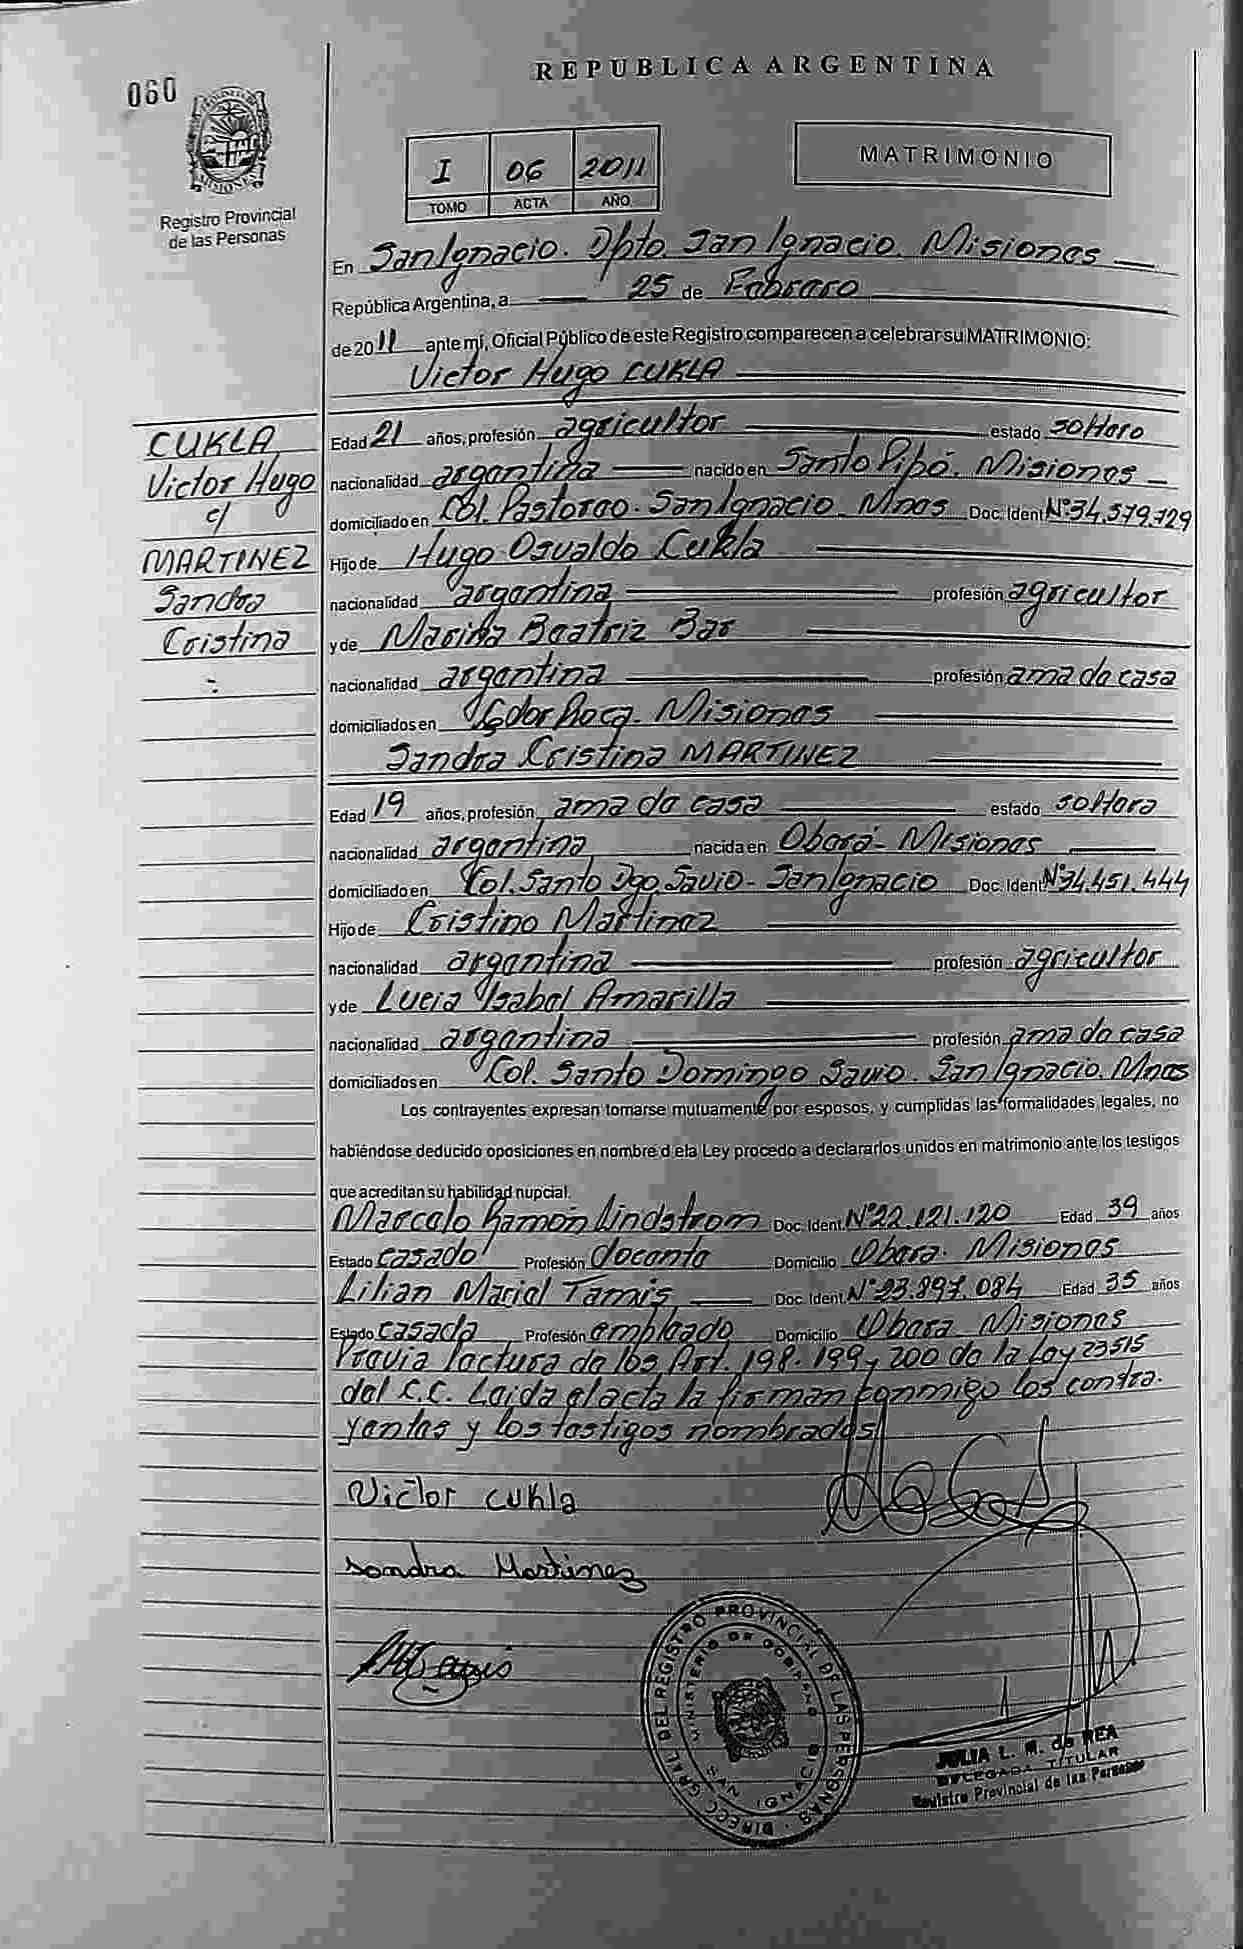 060
REPUBLICA ARGENTINA
I 06 2011
TOMO ACTA AÑO
MATRIMONIO
Registro Provincial
de las Personas
En San Ignacio. Dpto. San Ignacio. Misiones
República Argentina, a 25 de Febrero
de 2011 ante mí, Oficial Público de este Registro comparecen a celebrar su MATRIMONIO:
Victor Hugo CUKLA
CUKLA
Victor Hugo
c/
MARTINEZ
Sandra
Cristina
Edad 21 años, profesión agricultor estado soltero
nacionalidad argentina nacido en Santo Pipó. Misiones
domiciliado en Col. Pastoreo. San Ignacio. Mnes Doc. Ident. Nº34.579.729
Hijo de Hugo Osvaldo Cukla
nacionalidad argentina profesión agricultor
y de Marina Beatriz Bar
nacionalidad argentina profesión ama de casa
domiciliados en Gdor Roca. Misiones
Sandra Cristina MARTINEZ
Edad 19 años, profesión ama de casa estado soltera
nacionalidad argentina nacida en Oberá- Misiones
domiciliado en Col. Santo Dgo. Savio- San Ignacio Doc. Ident. Nº34.451.444
Hijo de Cristino Martinez
nacionalidad argentina profesión agricultor
y de Lucia Isabel Amarilla
nacionalidad argentina profesión ama de casa
domiciliados en Col. Santo Domingo Savio. San Ignacio. Mnes
Los contrayentes expresan tomarse mutuamente por esposos, y cumplidas las formalidades legales, no
habiéndose deducido oposiciones en nombre d ela Ley procedo a declararlos unidos en matrimonio ante los testigos
que acreditan su habilidad nupcial.
Marcelo Ramón Lindstrom Doc. Ident. Nº22.121.120 Edad 39 años
Estado casado Profesión docente Domicilio Obera. Misiones
Lilian Mariel Tamis Doc. Ident. Nº23.897.084 Edad 35 años
Estado casada Profesión empleado Domicilio Obera Misiones
Previa lectura de los Art. 198. 199 y 200 de la Ley 23515
del C.C. Leida el acta la firman conmigo los contra.
yentes y los testigos nombrados
Victor cukla
Sandra Martinez
DIRECC. GRAL. DEL REGISTRO PROVINCIAL DE LAS PERSONAS
MINISTERIO DE GOBIERNO
SAN IGNACIO
JULIA L. M. de REA
DELEGADA TITULAR
Registro Provincial de las Personas